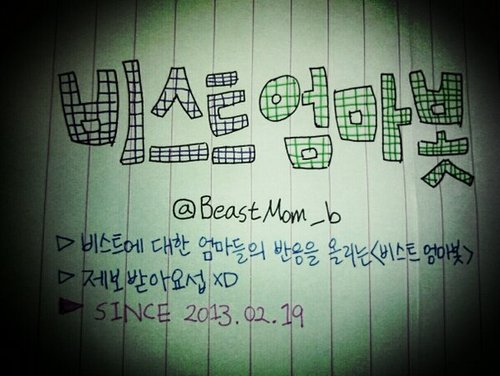 비스트엄마봇
@BeastMom_b
▷ 비스트에 대한 엄마들의 반응을 올리는<비스트 엄마봇>
▷ 제보받아요섭 XD
▶ SINCE 2013.02.19